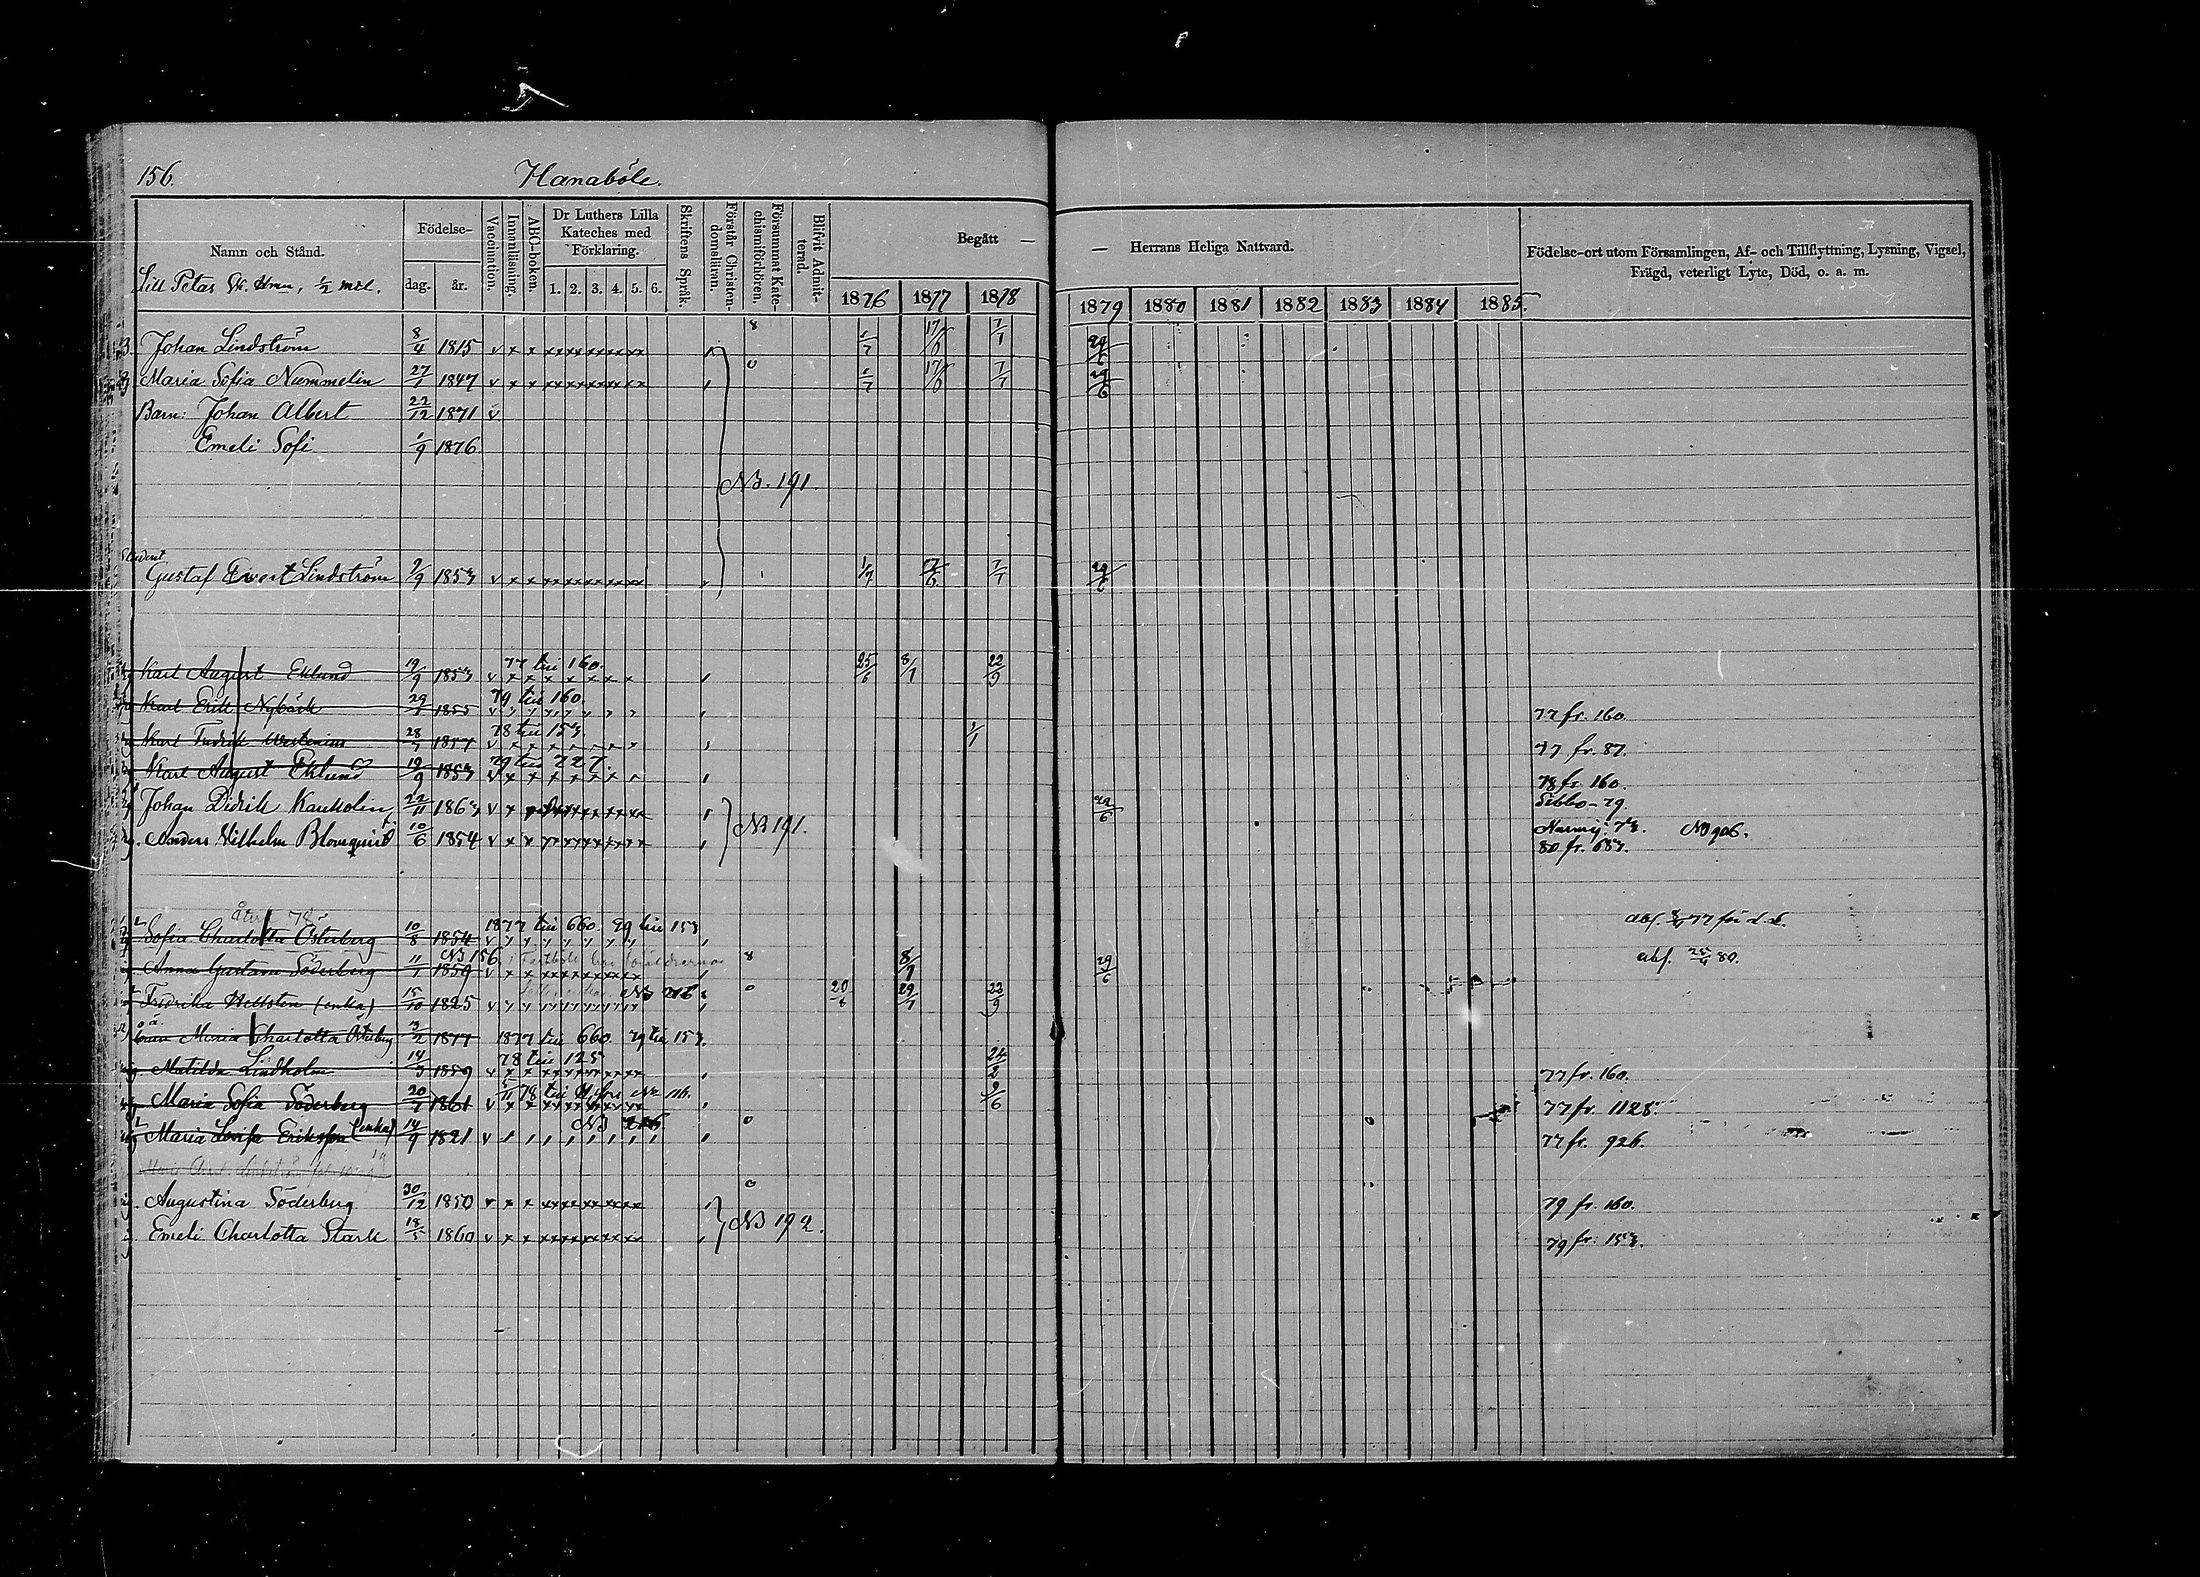 156. Hanaböle.
Namn och Stånd. Födelse- Vaccination. Innanläsning. ABC-boken. Dr Luthers Lilla Kateches med Förklaring. Skriftens Språk. Förstår Christendomsläran. Försummat Katechismiförhören. Blifvit Admitterad. Begått — — Herrans Heliga Nattvard. Födelse-ort utom Församlingen, Af- och Tillflyttning, Lysning, Vigsel, Frägd, veterligt Lyte, Död, o. a. m.
Lill Petas ½ mtl. dag. år. 1. 2. 3. 4. 5. 6. 1876 1877 1878 1879 1880 1881 1882 1883 1884 1885.
Johan Lindström 8/4 1815 1/7 17/6 7/7 29/6
Maria Sofia Nummelin 27/1 1847 1/7 17/6 7/7 29/6
Barn: Johan Albert 22/12 1871
Emeli Sofi 1/9 1876
N3. 191.
Student
Gustaf Evert Lindström 2/9 1853 1/7 17/6 7/7 29/6
77 till 160.
Karl August Eklund 19/9 1853 25/6 8/7 22/9
79 till 160.
Karl Erik Nybäck 29/1 1855 77 fr. 160.
78 till 153.
Karl Fredrik Westenius 28/7 1857 1/1 77 fr. 87.
79 till 227.
Karl August Eklund 19/9 1853 78 fr. 160.
Johan Didrik Kaukolin 22/11 1863 29/6 Sibbo - 79.
N3 191.
Anders Wilhelm Blomquist 10/6 1854 N3 906.
80 fr. 683.
åter 78
1877 till 660. 79 till 153
Sofia Charlotta Österberg 10/8 1854
N3 156.
Anna Gustava Söderberg 11/1 1859 8/7 29/6 abs. 25/4 80.
N3 216
Fredrika Hellsten (enka) 15/10 1825 20/8 29/7 22/9
Maria Charlotta Österberg 3/2 1877 1877 till 660. 79 till 153.
78 till 125
Matilda Lindholm 14/3 1859 24/2 77 fr. 160.
5/11 78 till H.fors No 116.
Maria Sofia Söderberg 20/7 1861 9/6 77 fr. 1128.
N3 216
Maria Lovisa Eriksson (enka) 14/9 1821 77 fr. 926.
Augustina Söderberg 30/12 1850 79 fr. 160.
N3 192.
Emeli Charlotta Stark 18/5 1860 79 fr. 153.